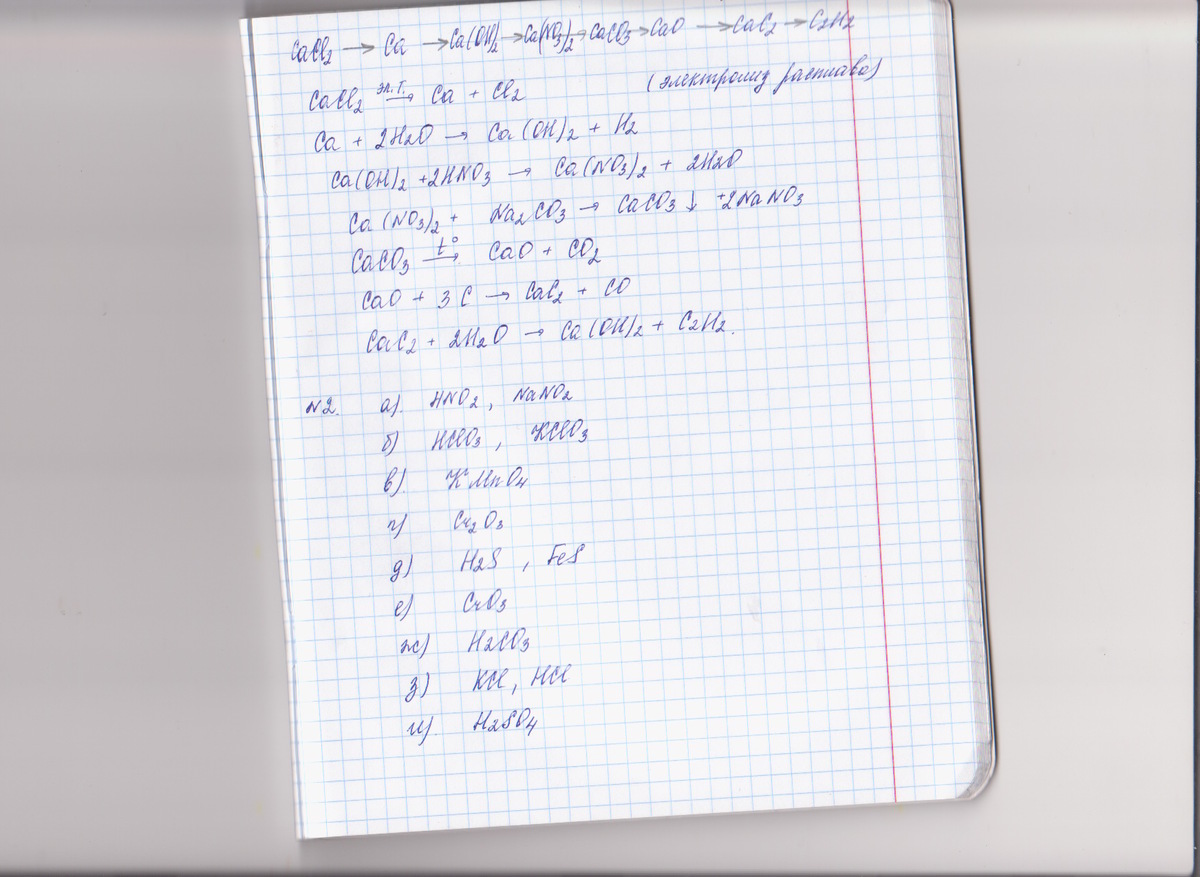 CaCl2 → Ca → Ca(OH)2 → Ca(NO3)2 → CaCO3 → CaO → CaC2 → C2H2
CaCl2 эл.т.→ Ca + Cl2 (электролиз расплава)
Ca + 2H2O → Ca(OH)2 + H2
Ca(OH)2 + 2HNO3 → Ca(NO3)2 + 2H2O
Ca(NO3)2 + Na2CO3 → CaCO3↓ + 2NaNO3
CaCO3 t°→ CaO + CO2
CaO + 3C → CaC2 + CO
CaC2 + 2H2O → Ca(OH)2 + C2H2.
N2. а). HNO2, NaNO2
б) HClO3, KClO3
в). KMnO4
г) Cr2O3
д) H2S, FeS
е) CrO3
ж) H2CO3
з) KCl, HCl
и). H2SO4